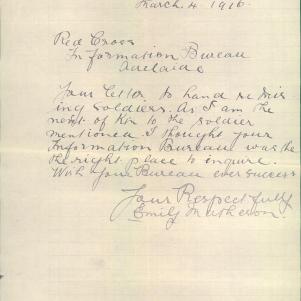 March. 4. 1916.
Red Cross
Information Bureau
Adelaide
Your letter to hand re miss
ing soldiers. As I am the
next of Kin to the soldier
mentioned. I thought your
Information Bureau was the
the right place to inquire.
Wish your Bureau ever success
Your Respectfully
Emily